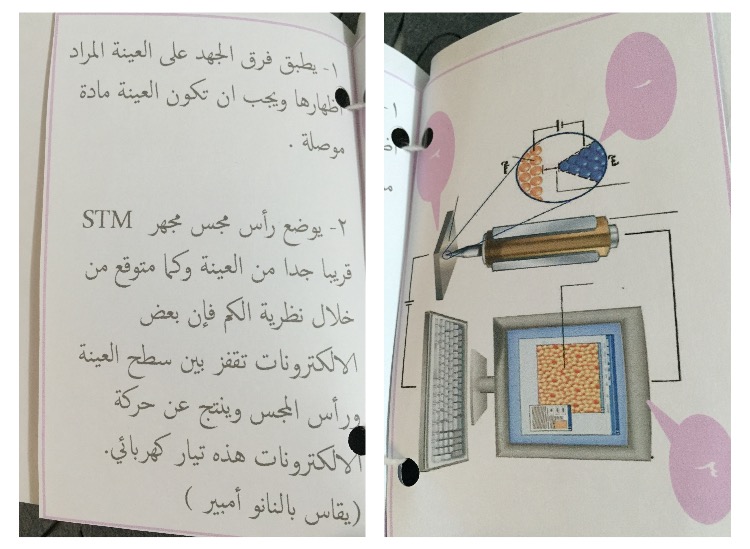 ١- يطبق فرق الجهد على العينة المراد
اظهارها ويجب ان تكون العينة مادة
موصلة .
٢- يوضع رأس مجس مجهر STM
قريبا جدا من العينة وكما متوقع من
خلال نظرية الكم فإن بعض
الالكترونات تقفز بين سطح العينة
ورأس المجس وينتج عن حركة
الالكترونات هذه تيار كهربائي.
(يقاس بالنانو أمبير )
١
٢
٣